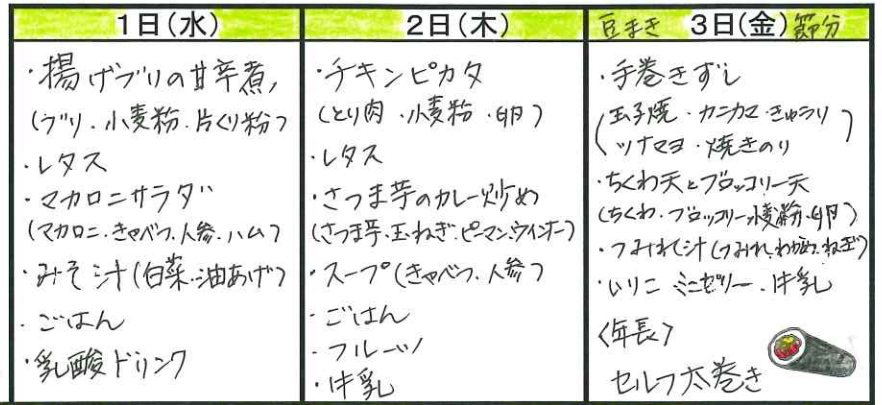 1日(水)
・揚げブリの甘辛煮
(ブリ・小麦粉・片くり粉)
・レタス
・マカロニサラダ
(マカロニ・きゃべつ・人参・ハム)
・みそ汁(白菜・油あげ)
・ごはん
・乳酸ドリンク
2日(木)
・チキンピカタ
(とり肉・小麦粉・卵)
・レタス
・さつま芋のカレー炒め
(さつま芋・玉ねぎ・ピーマン・ウインナー)
・スープ(きゃべつ・人参)
・ごはん
・フルーツ
・牛乳
豆まき 3日(金) 節分
・手巻きずし
(玉子焼・カニカマ・きゅうり
ツナマヨ・焼きのり)
・ちくわ天とブロッコリー天
(ちくわ・ブロッコリー・小麦粉・卵)
・つみれ汁(つみれ・わかめ・ねぎ)
・いりこ ミニゼリー・牛乳
〈年長〉
セルフ太巻き